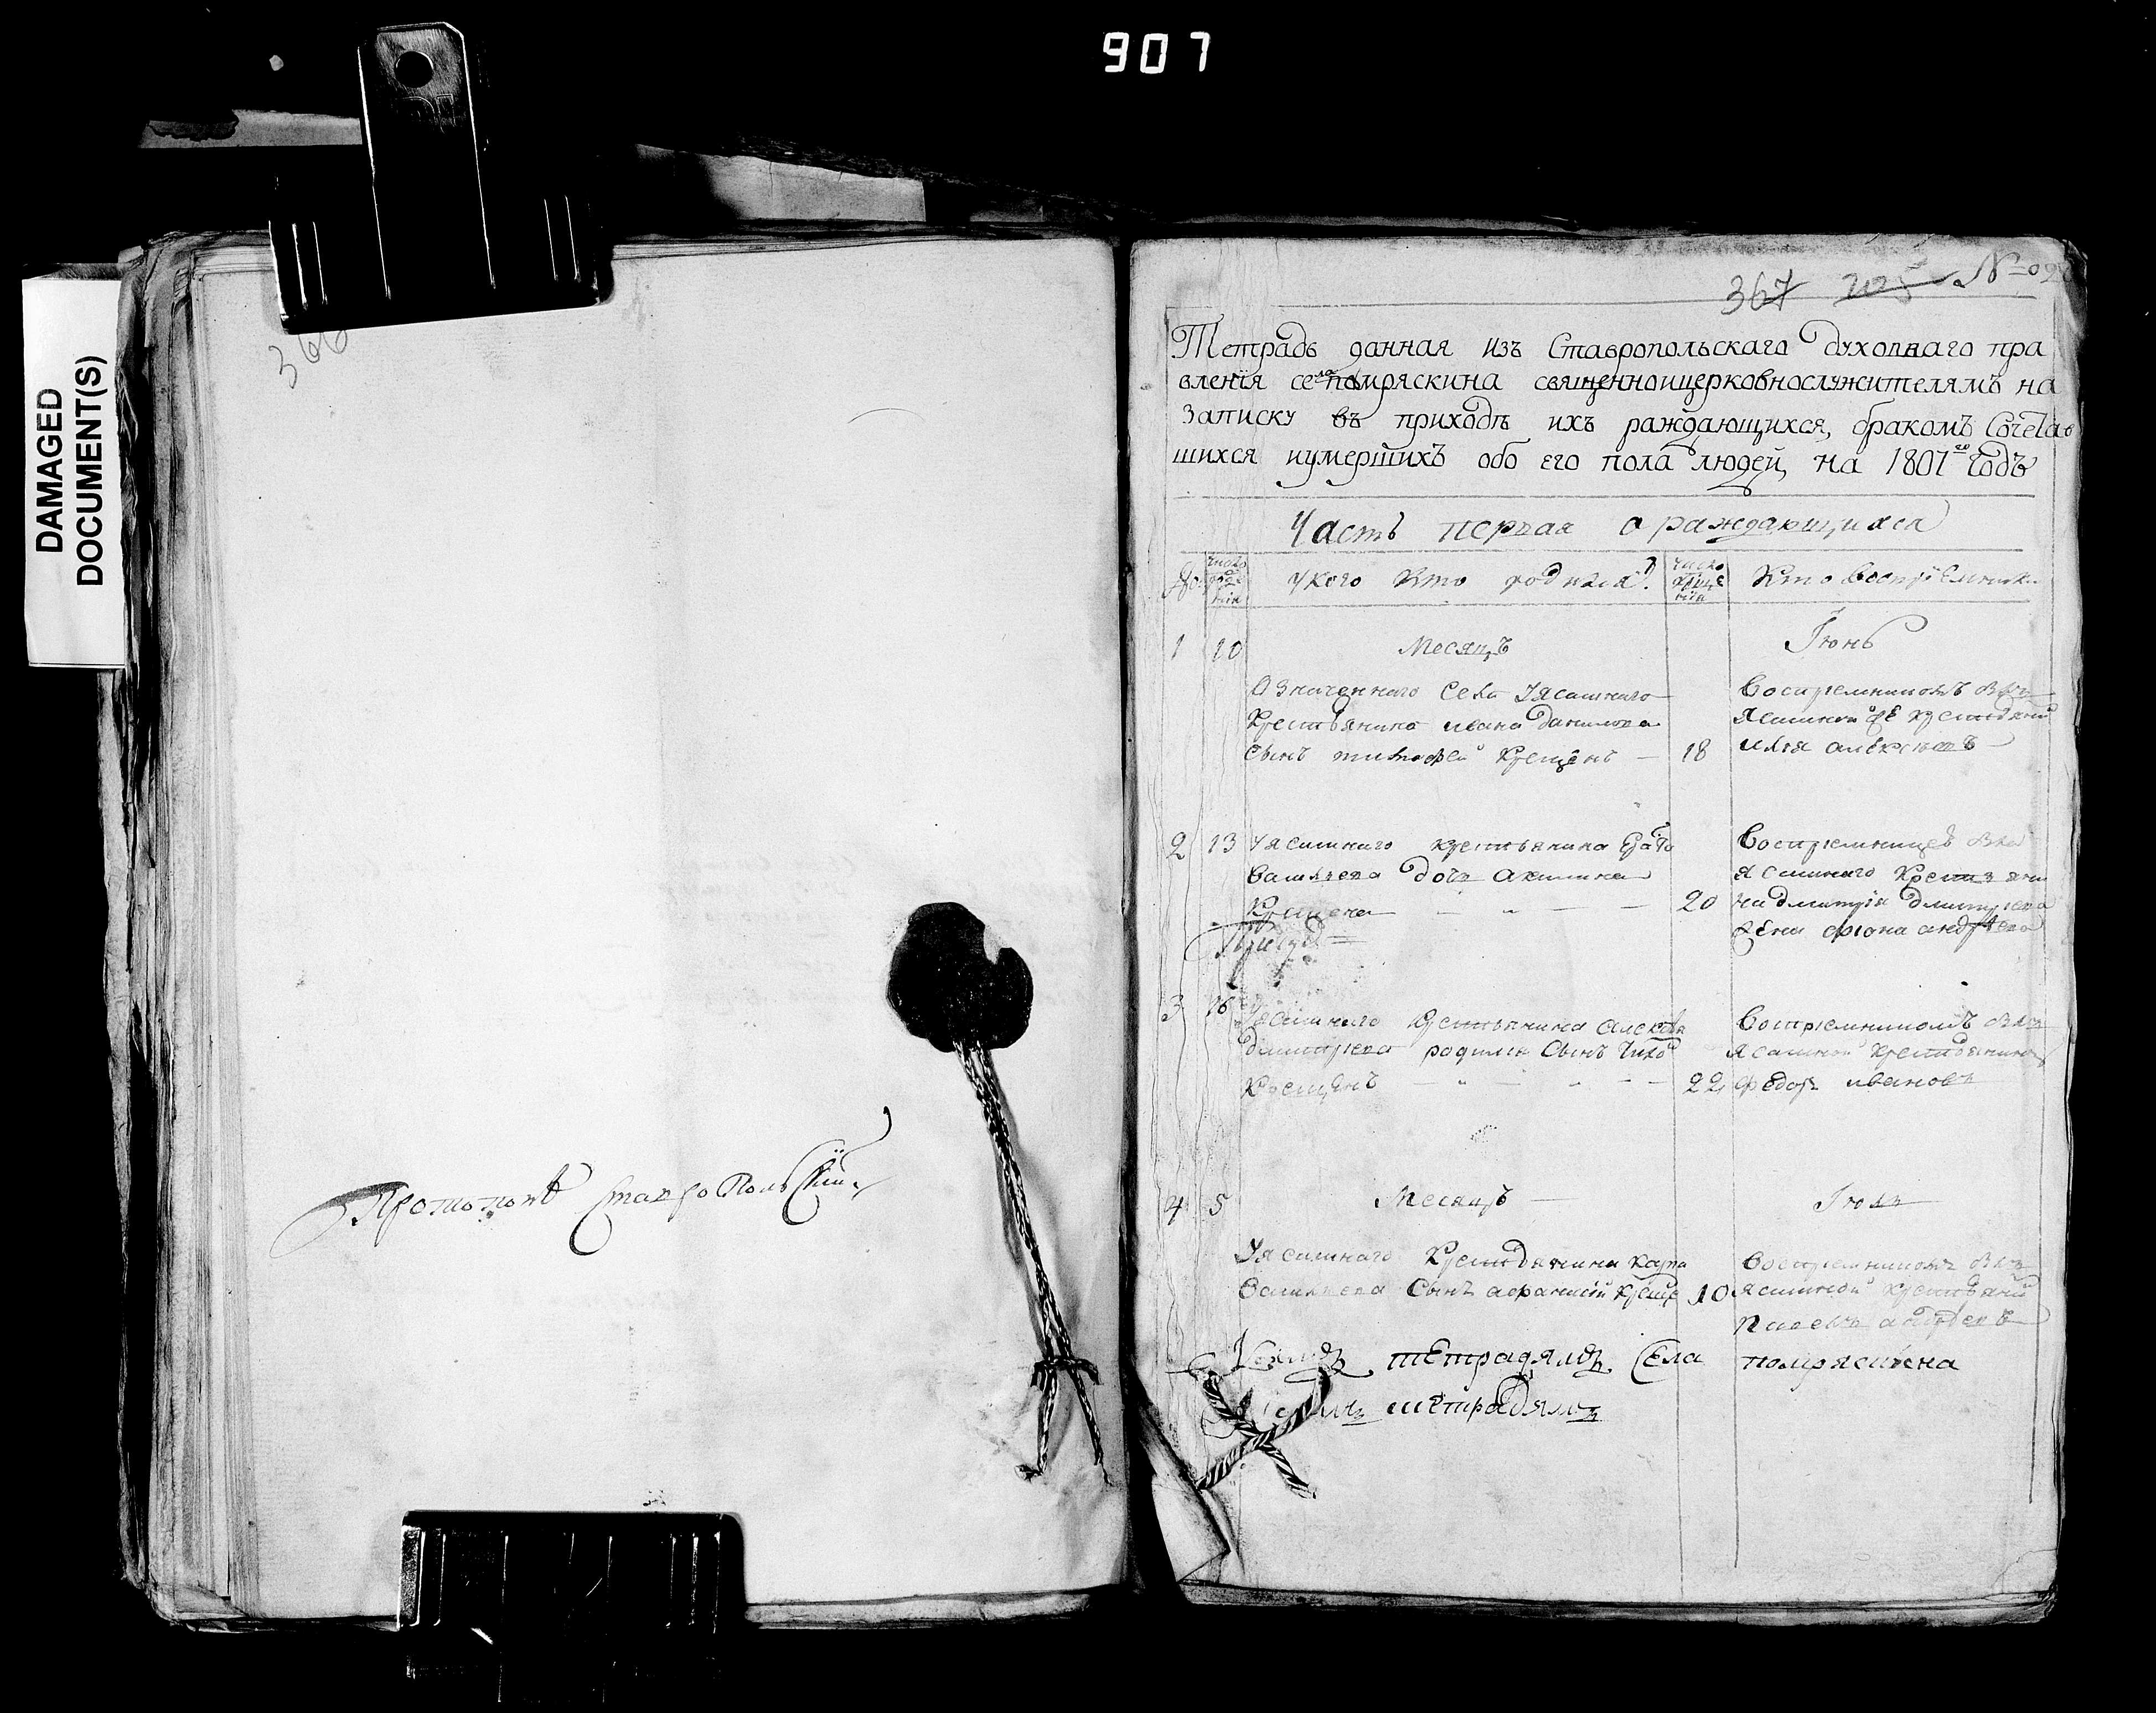 907
DAMAGED
DOCUMENT(S)
366
Протопопъ Ставропольскiй
367 205 №
Тетрадь данная изъ Ставропольскаго духовнаго пра
вленiя села помряскина священноицерковнослужителямъ на
записку въ приходѣ ихъ раждающихся, бракомъ Сочетав
шихся иумершихъ обо его пола людей, на 1801 го Годъ
Часть первая о раждающихся
число рожденiя
укого кто родился.
число крещенiя
Кто воспрiемники
1 10 Месяцъ Iюнь
Означеннаго Села Уясашнаго
Крестьянина ивана данилова
сынъ тимофей Крещенъ — 18
Воспремникомъ былъ
Ясашной же крестьянинъ
илья алексѣевъ
2 13 Уясашнаго крестьянина
Василева дочь акилина
Крещена — — — 20
Воспремницей была
ясашнаго Крестьяни
на дмитрiя дмитрiева
жена андрѣева
3 16 Уясашнаго Крестьянина алексѣя
дмитрiева родился Сынъ
Крещенъ — — — 22
Воспремникомъ былъ
Ясашной крестьянинъ
федоръ ивановъ
4 5 Месяцъ — Iюль
Уясашнаго Крестьянина карпа
Василева Сынъ афанасiй креще 10
Воспремникомъ былъ
ясашной крестьянинъ
андрѣевъ
тетрадямъ Села помряскина
тетрадямъ